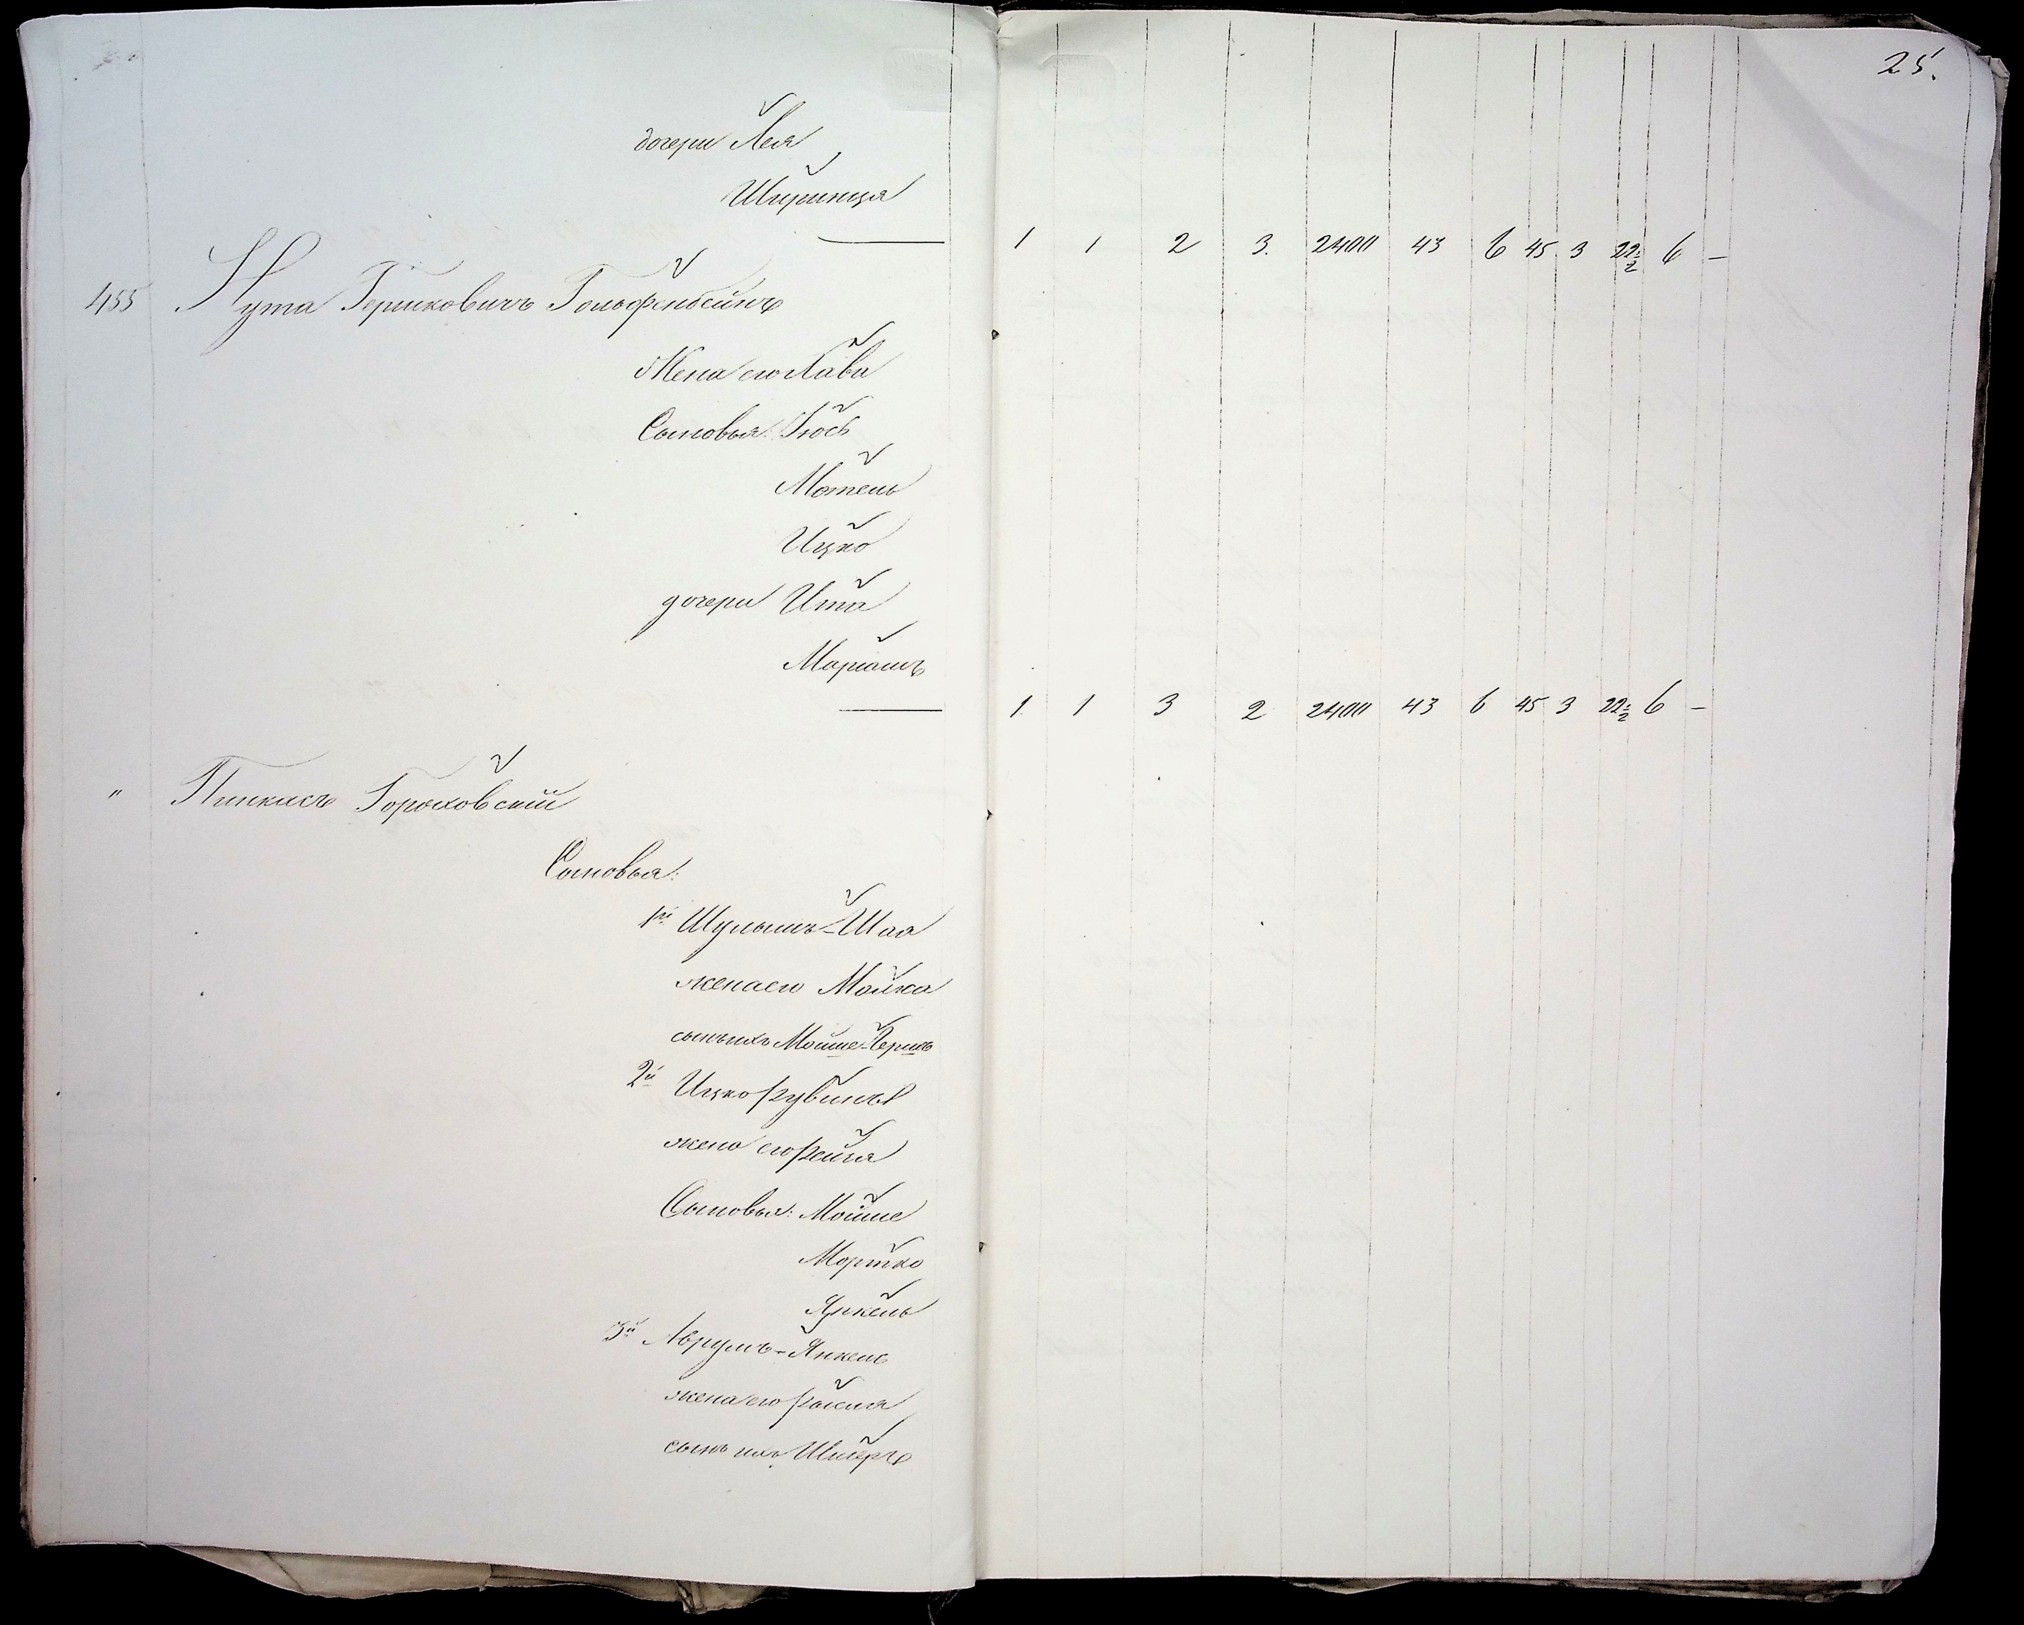 25.
дочери Лея
Шпринца
1 1 2 3. 2400 43 6 45 3 22½ 6 —
455 Нута Гершковичъ Гольфенбейнъ
Жена его Хава
Сыновья: Іось
Мотель
Ицко
дочери Ита
Маріамъ
1 1 3 2 2400 43 6 45 3 22½ 6 —
" Пинкасъ Гороховскій
Сыновья:
1й Шулымъ-Шая
жена его Малка
сынъ ихъ Мойше-Берко
2й Ицко Рувинъ
жена его Рейзя
Сыновья: Мойше
Мортко
Янкель
3й Аврумъ-Янкель
жена его
сынъ ихъ